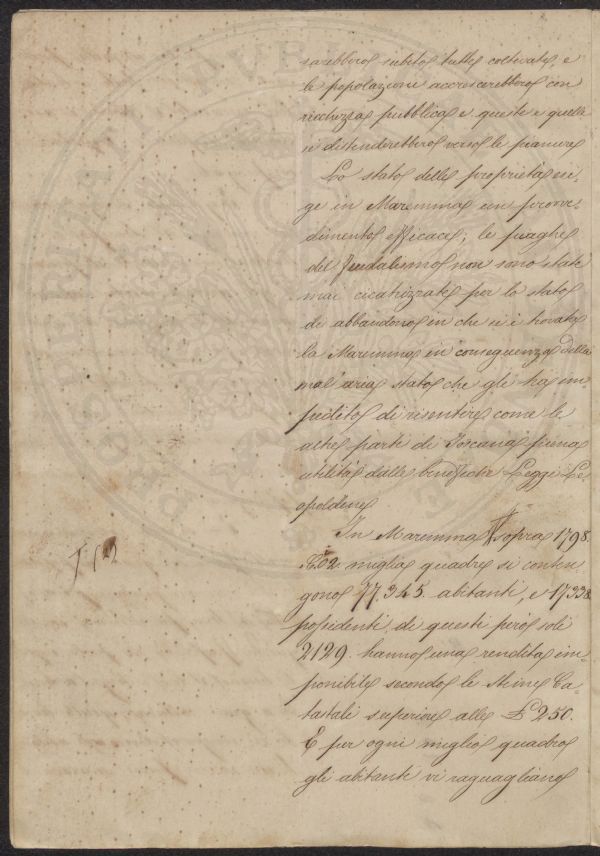 sarebbero subito tutte coltivate, e
la popolazione accrescerebbero con
ricchezza pubblica e queste e quella
si distenderebbero verso le pianure
Lo stato delle proprietà esi-
ge in Maremma un provve-
dimento efficace; le piaghe
del feudalismo non sono state
mai cicatrizzate per lo stato
di abbandono in che si è trovata
la Maremma in conseguenza della
mal'aria, stato che gli ha im-
pedito di risentire come le
altre parti di Toscana piena
utilità dalle benefiche Leggi Le-
opoldine
In Maremma sopra 1798.
miglia quadre si conten-
gono 77.345. abitanti, e 17338
possidenti, di questi però soli
2129. hanno una rendita im-
ponibile secondo le Stime Ca-
tastali superiore alle £ 250.
E per ogni miglio quadro
gli abitanti vi ragguagliano